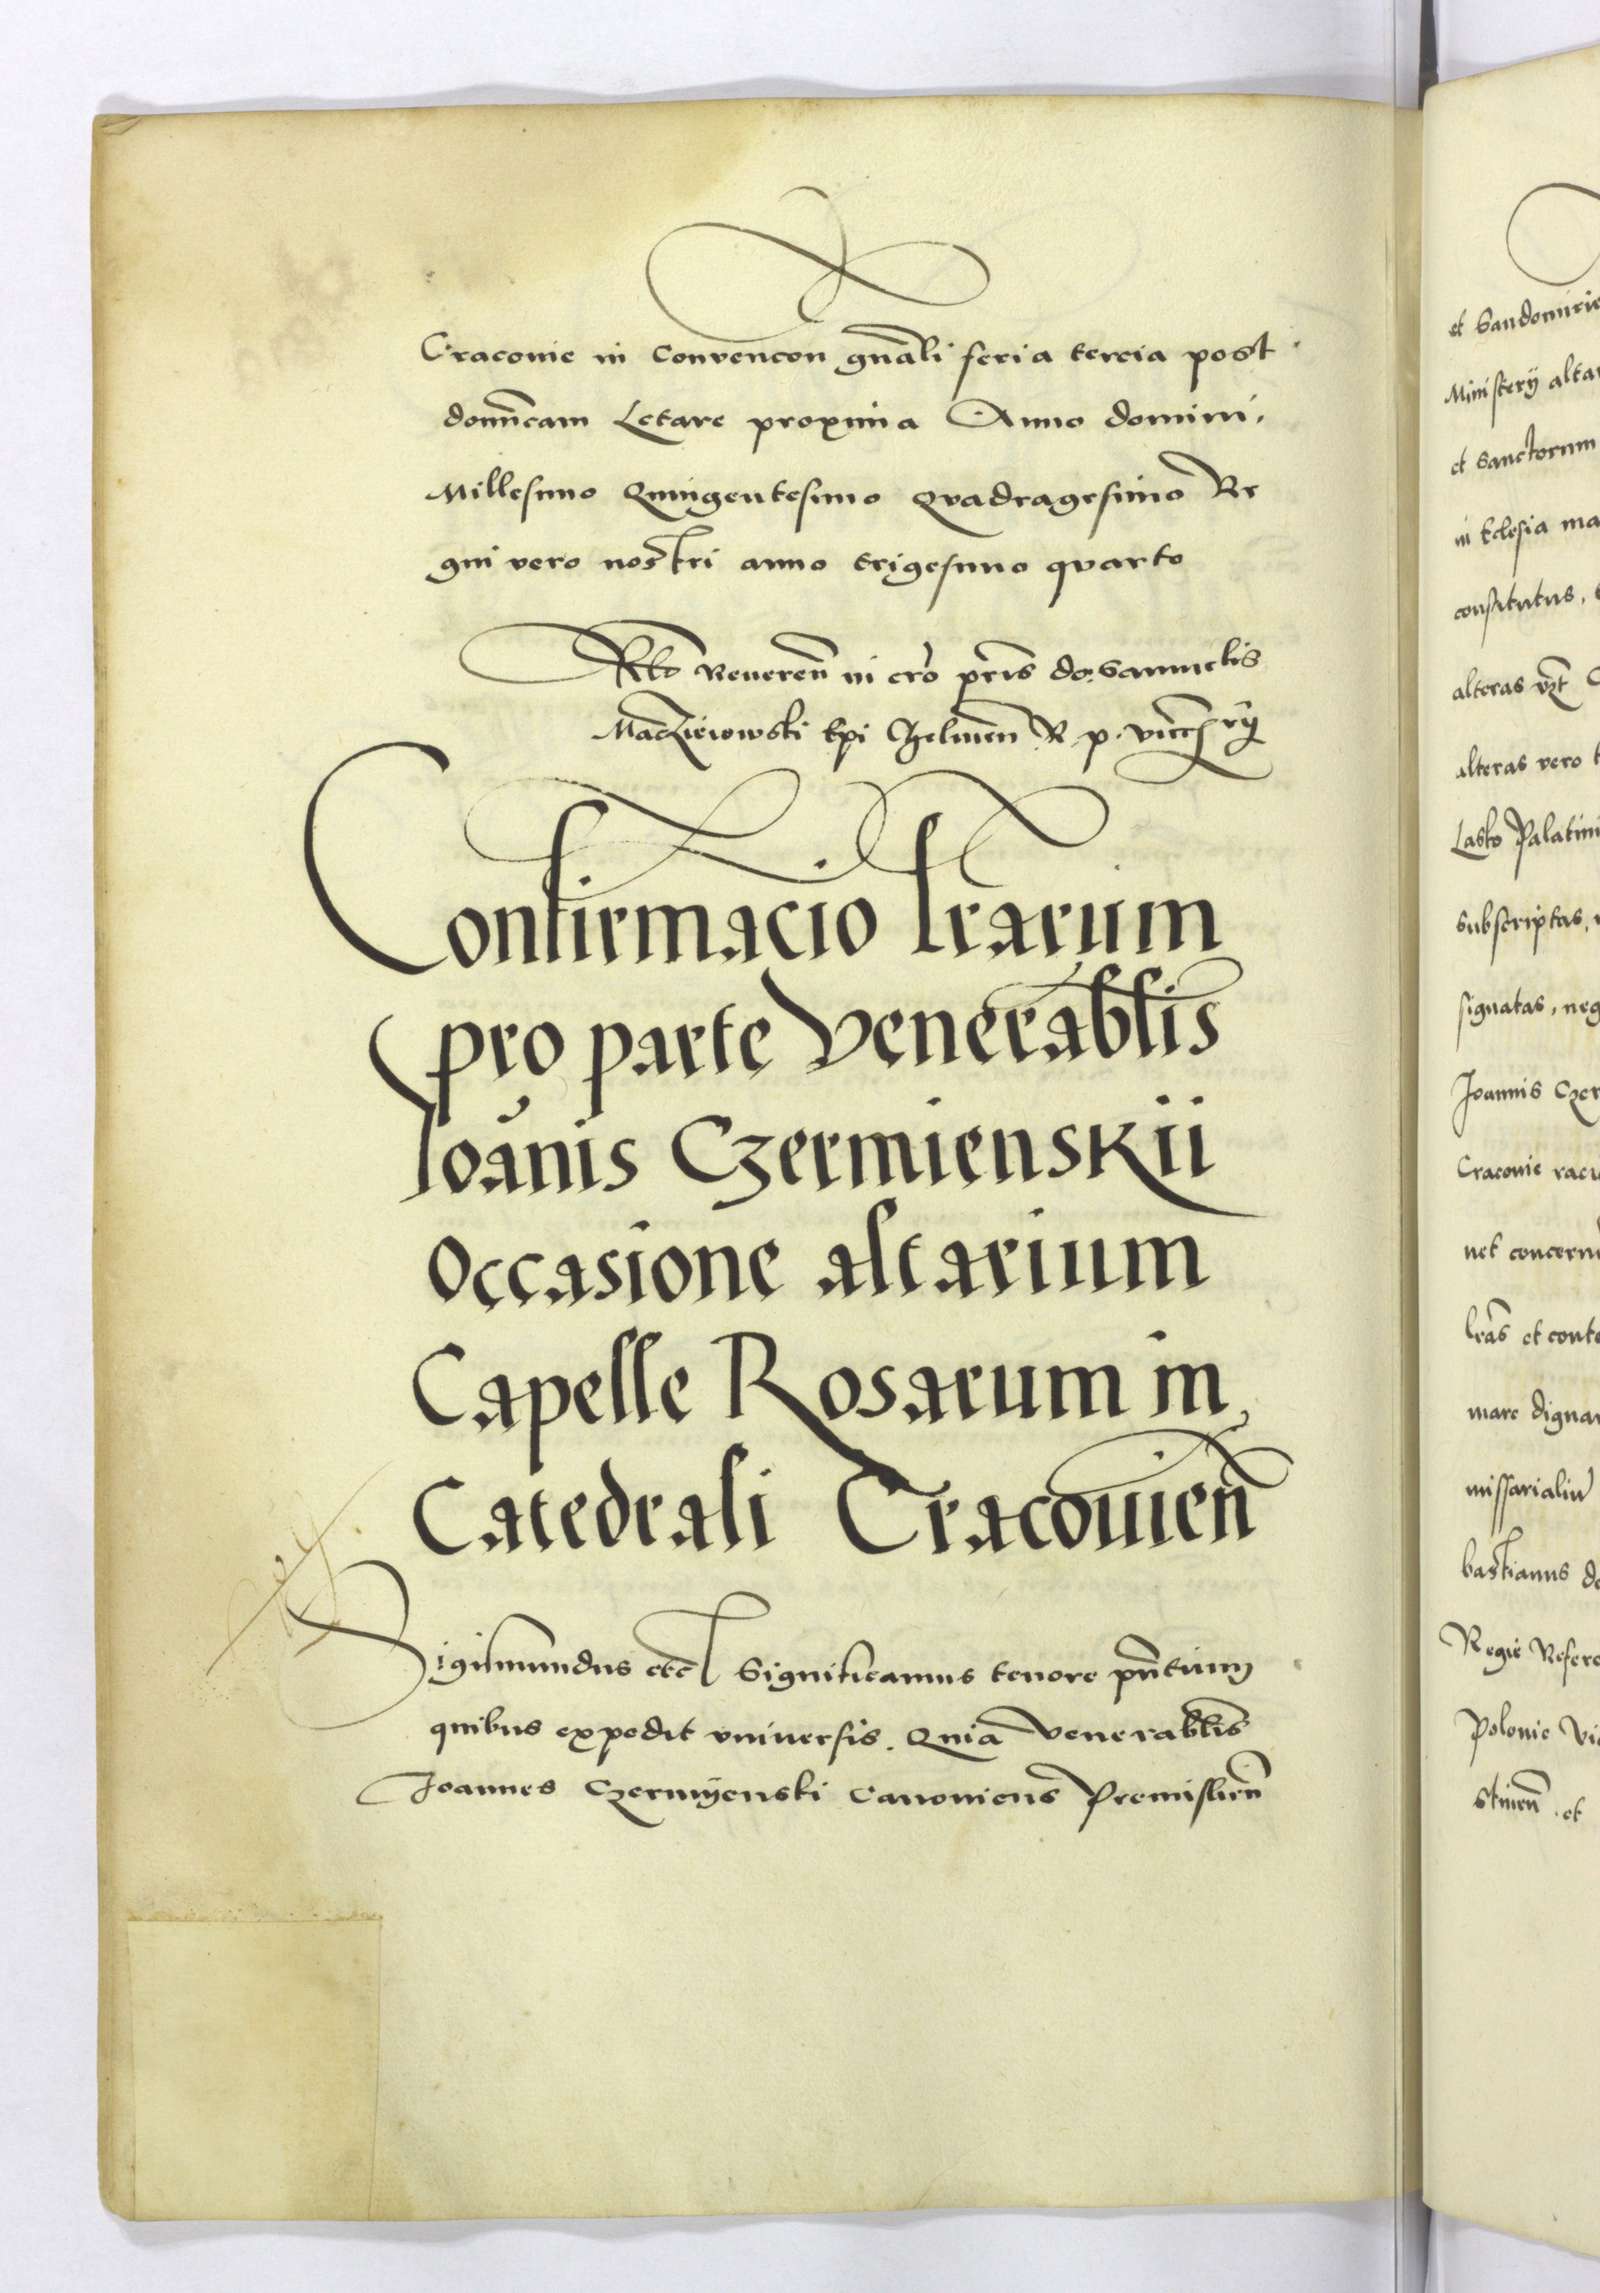 Cracovie in Convencon gnali feria tercia post
domīcam Letare proxima Anno domini.
Millesimo Quingentesimo Qvadragesimo Re
gni vero nostri anno trigesimo qvarto
Reveren in cro pris do. Samuelis
Macżieiowski Epi Chelmen R. p. vicecancrij
Confirmacio lrarum
pro parte Venerablis
Ioanis Czermienskii
Occasione altarium
Capelle Rosarum in
Catedrali Cracovien
Sigismundus etc Significamus tenore pntium
quibus expedit vniversis. Quia Venerablis
Joannes Czermyenski Canonicus Premislien
et Sandomirie
Ministerij altar
et Sanctorum
in Eclesia ma
constitutus,
alteras vzt
alteras vero
Lasko Palatini
subscriptas,
signatas, neg
Joannis Czer
Cracovie
net concern
lras et conte
mare digna
missarialiu
bastianus do
Regie Refere
Polonie Vi
et